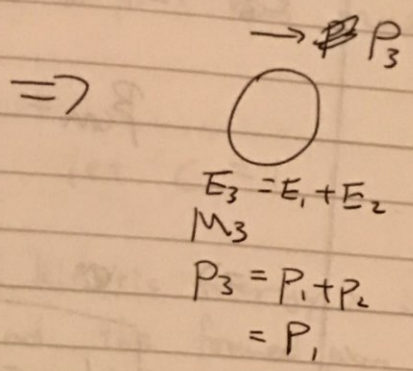 → P₃
⇒
E₃ = E₁ + E₂
M₃
P₃ = P₁ + P₂
= P₁